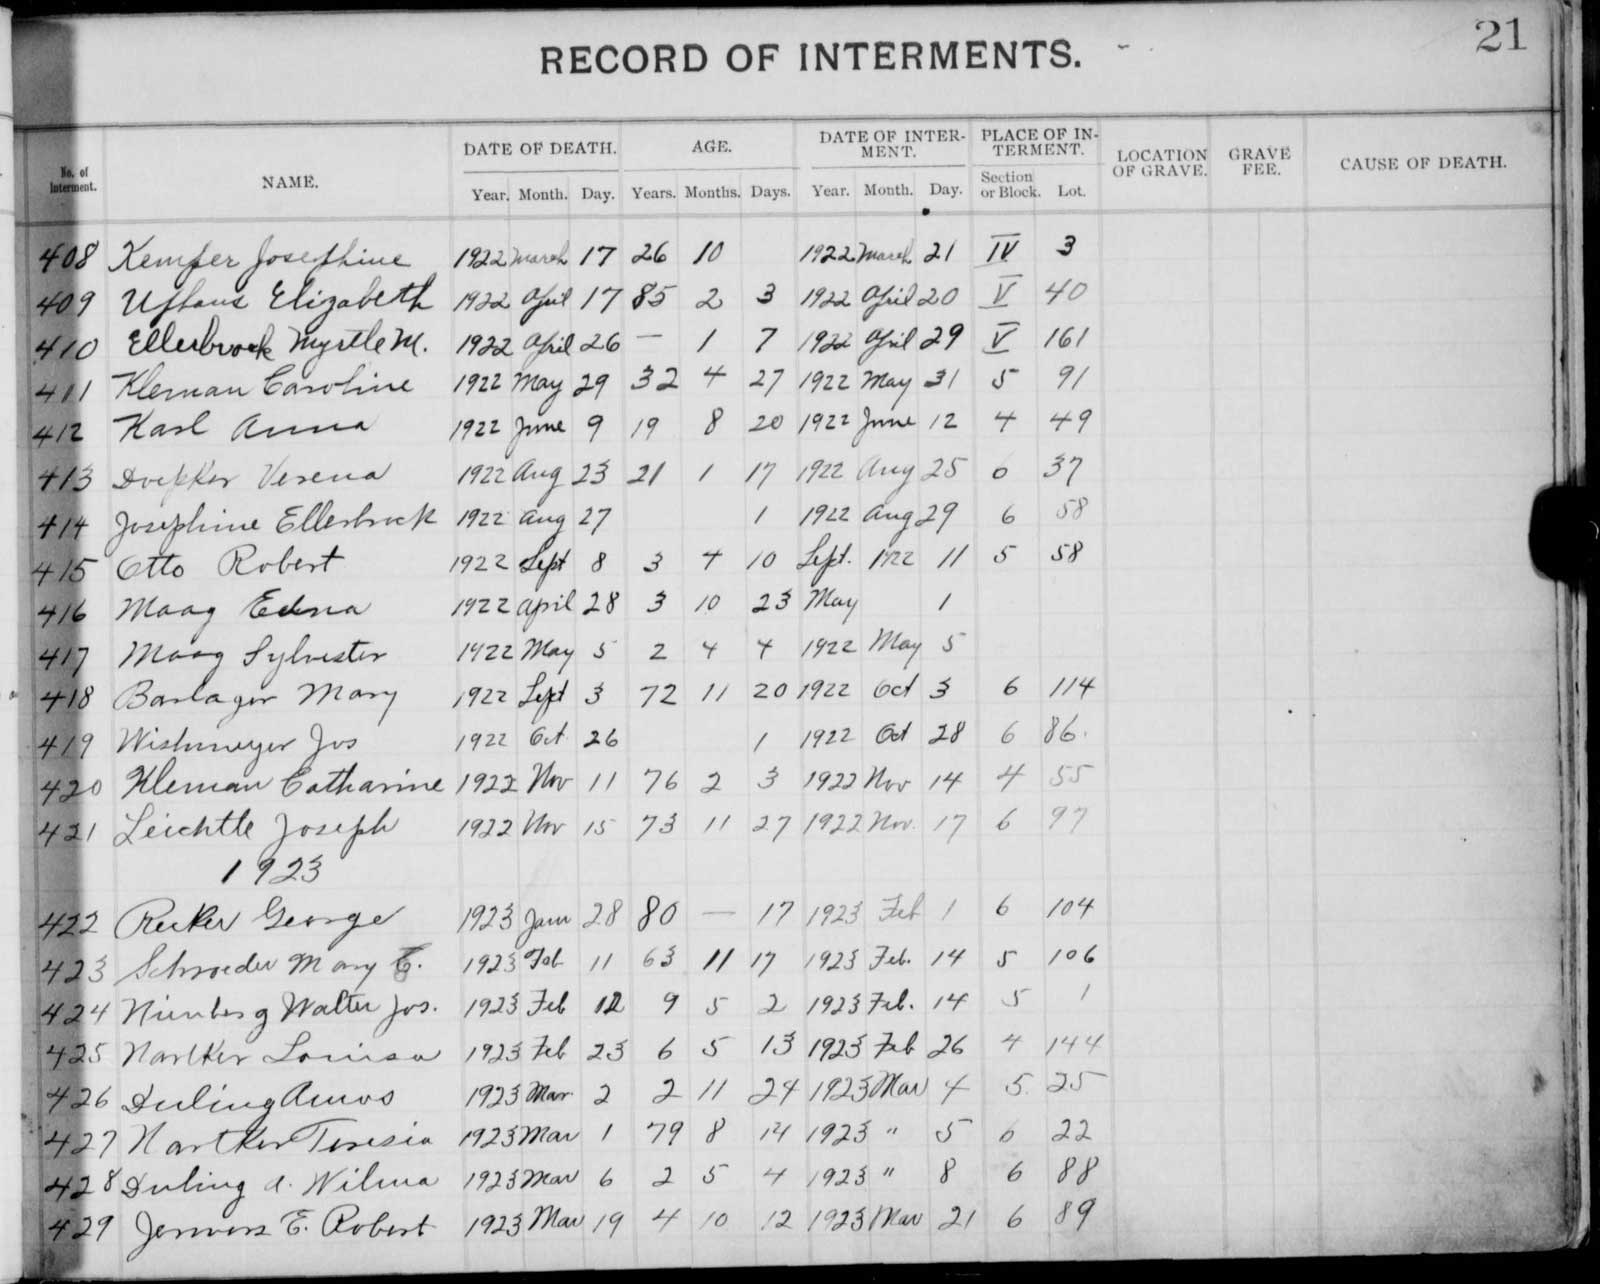 21
RECORD OF INTERMENTS.
No. of Interment. NAME. DATE OF DEATH. AGE. DATE OF INTER-MENT. PLACE OF IN-TERMENT. LOCATION OF GRAVE. GRAVE FEE. CAUSE OF DEATH.
Year. Month. Day. Years. Months. Days. Year. Month. Day. Section or Block. Lot.
408 Kemper Josephine 1922 March 17 26 10 1922 March 21 IV 3
409 Uphaus Elizabeth 1922 April 17 85 2 3 1922 April 20 V 40
410 Ellerbrock Myrtle M. 1922 April 26 — 1 7 1922 April 29 V 161
411 Kleman Caroline 1922 May 29 32 4 27 1922 May 31 5 91
412 Karl Anna 1922 June 9 19 8 20 1922 June 12 4 49
413 Doepker Verena 1922 Aug 23 21 1 17 1922 Aug 25 6 37
414 Josephine Ellerbrock 1922 Aug 27 1 1922 Aug 29 6 58
415 Otto Robert 1922 Sept 8 3 4 10 Sept. 1922 11 5 58
416 Maag Edna 1922 April 28 3 10 23 May 1
417 Maag Sylvester 1922 May 5 2 4 4 1922 May 5
418 Barlager Mary 1922 Sept 3 72 11 20 1922 Oct 3 6 114
419 Wischmeyer Jos 1922 Oct 26 1 1922 Oct 28 6 86.
420 Kleman Catharine 1922 Nov 11 76 2 3 1922 Nov 14 4 55
421 Leichtle Joseph 1922 Nov 15 73 11 27 1922 Nov. 17 6 97
1923
422 Recker George 1923 Jan 28 80 — 17 1923 Feb 1 6 104
423 Schroeder Mary C. 1923 Feb 11 63 11 17 1923 Feb. 14 5 106
424 Nienberg Walter Jos. 1923 Feb 12 9 5 2 1923 Feb. 14 5 1
425 Nartker Louisa 1923 Feb 23 6 5 13 1923 Feb 26 4 144
426 Duling Amos 1923 Mar 2 2 11 24 1923 Mar 4 5. 25
427 Nartker Teresia 1923 Mar 1 79 8 14 1923 " 5 6 22
428 Duling A. Wilma 1923 Mar 6 2 5 4 1923 " 8 6 88
429 E. Robert 1923 Mar 19 4 10 12 1923 Mar 21 6 89